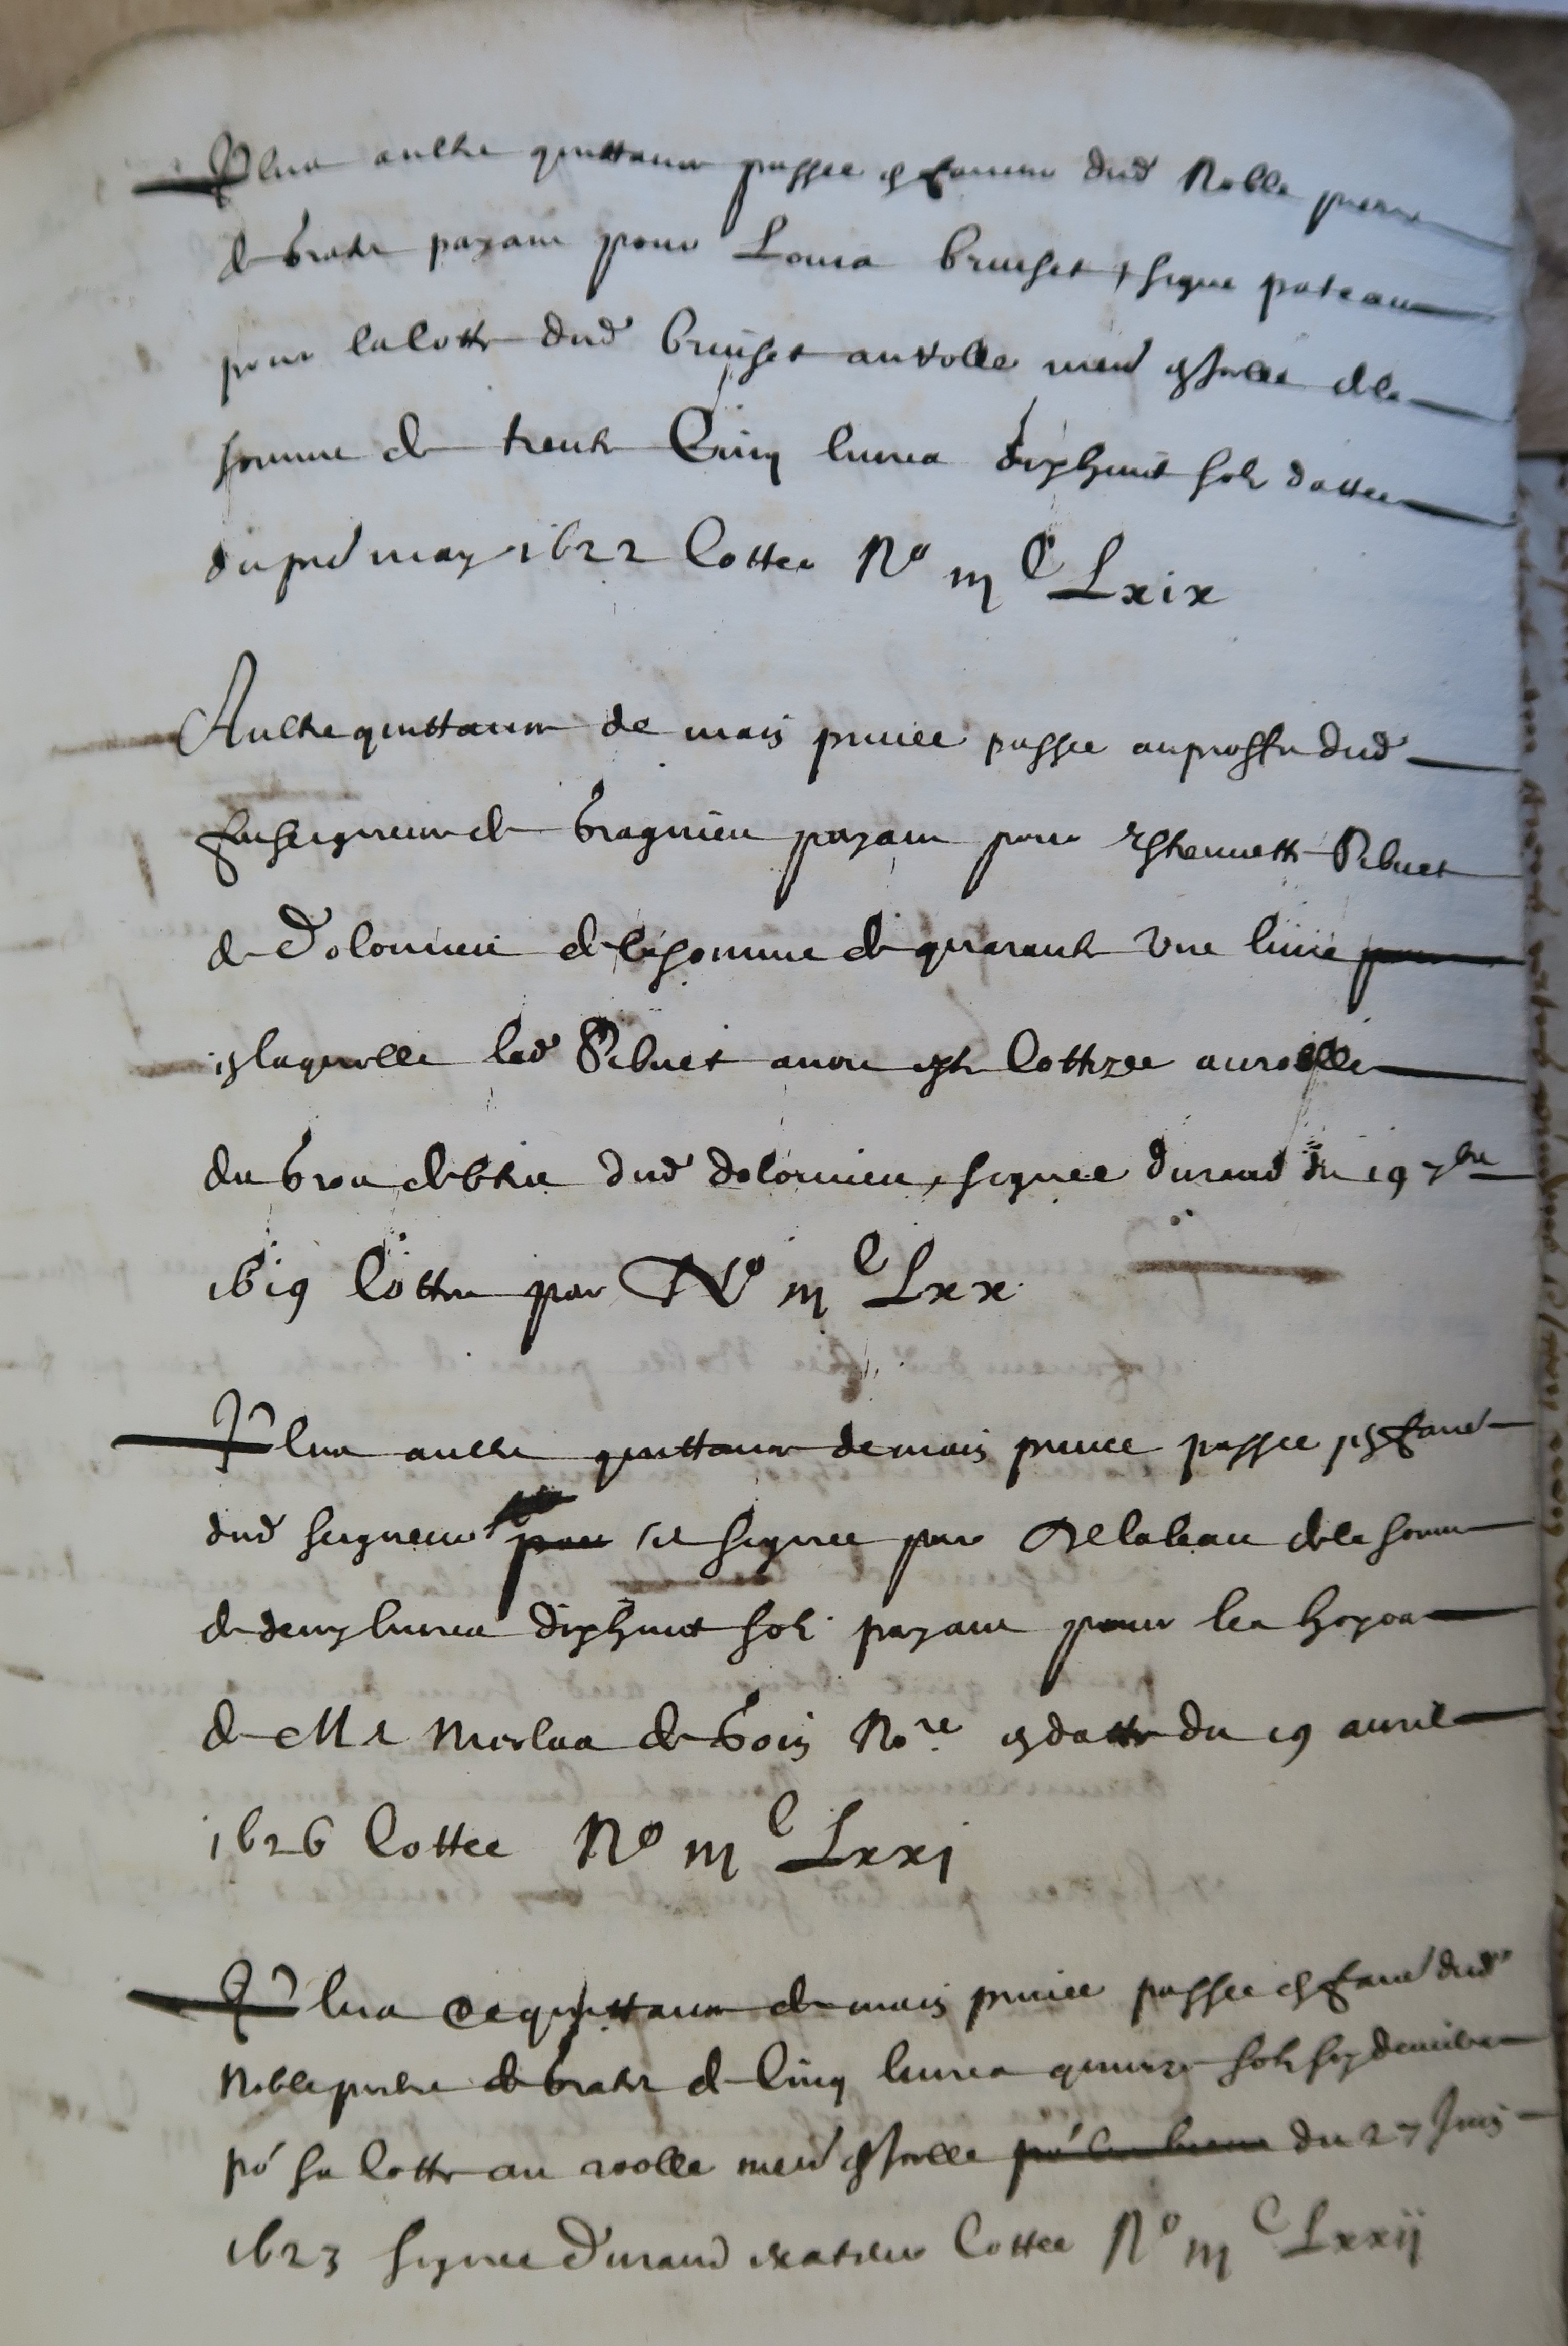 Plus aultre quittance passee en faveur dud Noble pierre
de brati payant pour Louis bruiset signe pateau
pour la cotte dud bruiset au rolle med de la
somme de trente Cinq livres dixhuit solz dattee
du pnr may 1622 Cottee No iij C Lxix
Aultre quittance de main privee passee au proffit dud
feu seigneur de bragnieu payant pour Esthennette Rebuet
de Dolomieu de la somme de quarante une livre
en laquelle lad Rebuet avoit este Cottizee au rolle
du dud dolomieu, signee durand du 19 7bre
1619 Cottee par No iij C Lxx
Plus aultre quittance de main privee passee en faveur
dud seigneur et signee par de la somme
de deux livres dixhuit solz payant pour les hoyrs
de Me Nicolas de boin Nore en datte du 19 avril
1626 Cottee No iij C Lxxj
Plus quittance de main privee passee en faveur dud
Noble pierre de brati de Cinq livres quinze solz six deniers
po sa Cotte au rolle med du 27 Juin
1623 signee Durand exateur Cottee No iij C Lxxij